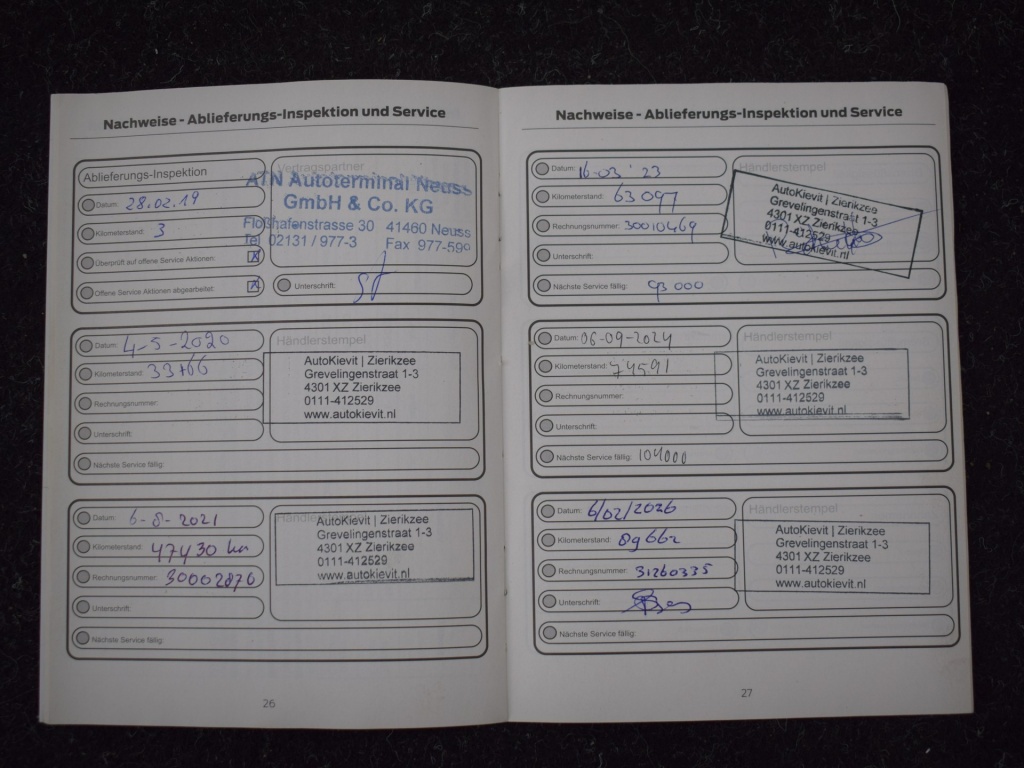 Nachweise - Ablieferungs-Inspektion und Service
Ablieferungs-Inspektion
Datum: 28.02.19
Kilometerstand: 3
Überprüft auf offene Service Aktionen: X
Offene Service Aktionen abgearbeitet: X
Vertragspartner
ATN Autoterminal Neuss
GmbH & Co. KG
Floßhafenstrasse 30 41460 Neuss
Tel 02131 / 977-3 Fax 977-599
Unterschrift:
Datum: 4-5-2020
Kilometerstand: 33766
Rechnungsnummer:
Unterschrift:
Nächste Service fällig:
Händlerstempel
AutoKievit | Zierikzee
Grevelingenstraat 1-3
4301 XZ Zierikzee
0111-412529
www.autokievit.nl
Datum: 6-8-2021
Kilometerstand: 47430 km
Rechnungsnummer: 30002876
Unterschrift:
Nächste Service fällig:
Händlerstempel
AutoKievit | Zierikzee
Grevelingenstraat 1-3
4301 XZ Zierikzee
0111-412529
www.autokievit.nl
26
Nachweise - Ablieferungs-Inspektion und Service
Datum: 16-03 '23
Kilometerstand: 63097
Rechnungsnummer: 30010469
Unterschrift:
Nächste Service fällig: 93000
Händlerstempel
AutoKievit | Zierikzee
Grevelingenstraat 1-3
4301 XZ Zierikzee
0111-412529
www.autokievit.nl
Datum: 06-09-2024
Kilometerstand: 74591
Rechnungsnummer:
Unterschrift:
Nächste Service fällig: 104000
Händlerstempel
AutoKievit | Zierikzee
Grevelingenstraat 1-3
4301 XZ Zierikzee
0111-412529
www.autokievit.nl
Datum: 6/02/2026
Kilometerstand: 89662
Rechnungsnummer: 31260335
Unterschrift:
Nächste Service fällig:
Händlerstempel
AutoKievit | Zierikzee
Grevelingenstraat 1-3
4301 XZ Zierikzee
0111-412529
www.autokievit.nl
27